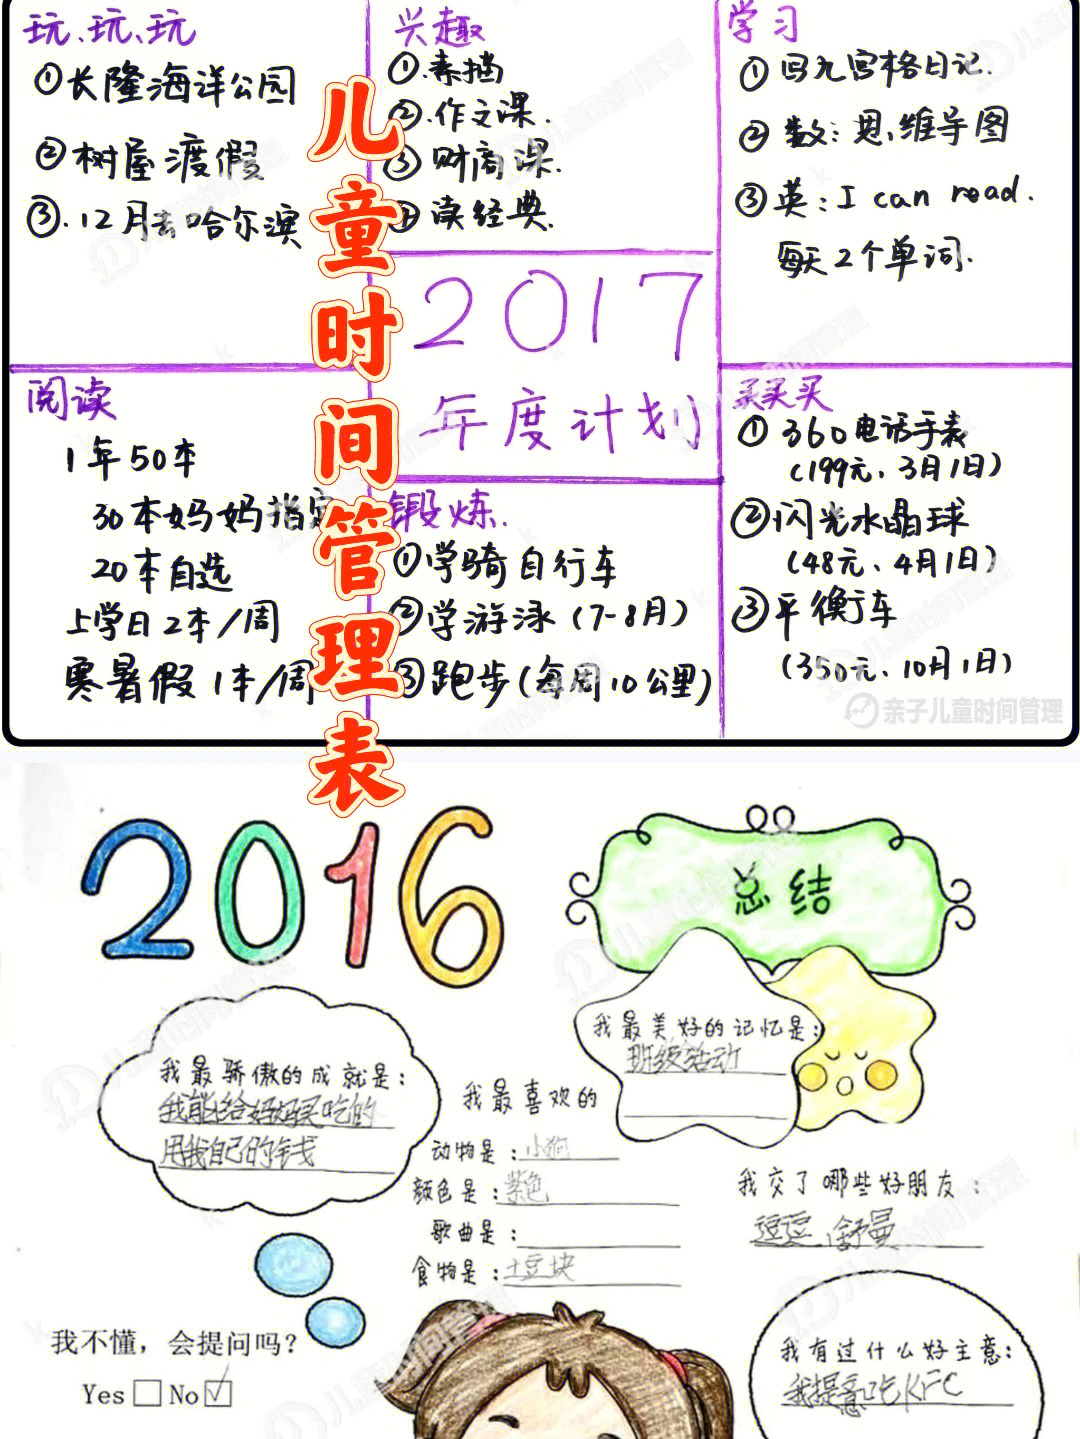 儿童时间管理表
玩、玩、玩
①长隆海洋公园
②树屋渡假
③.12月去哈尔滨
兴趣
①.素描
②.作文课.
③财商课.
④读经典.
学习
①写九宫格日记.
②数:思维导图
③英:I can read.
每天2个单词.
2017
年度计划
阅读
1年50本
30本妈妈指定
20本自选
上学日2本/周
寒暑假1本/周
锻炼.
①学骑自行车
②学游泳(7-8月)
③跑步(每周10公里)
买买买
①360电话手表
(199元、3月1日)
②闪光水晶球
(48元、4月1日)
③平衡车
(350元、10月1日)
亲子儿童时间管理
2016
总结
我最骄傲的成就是:
我能给妈妈买吃的
用我自己的钱
我最美好的记忆是:
班级活动
我最喜欢的
动物是:小狗
颜色是:紫色
歌曲是:
食物是:土豆块
我交了哪些好朋友:
逗逗、舒曼
我不懂，会提问吗?
Yes□ No☑
我有过什么好主意:
我提意吃KFC